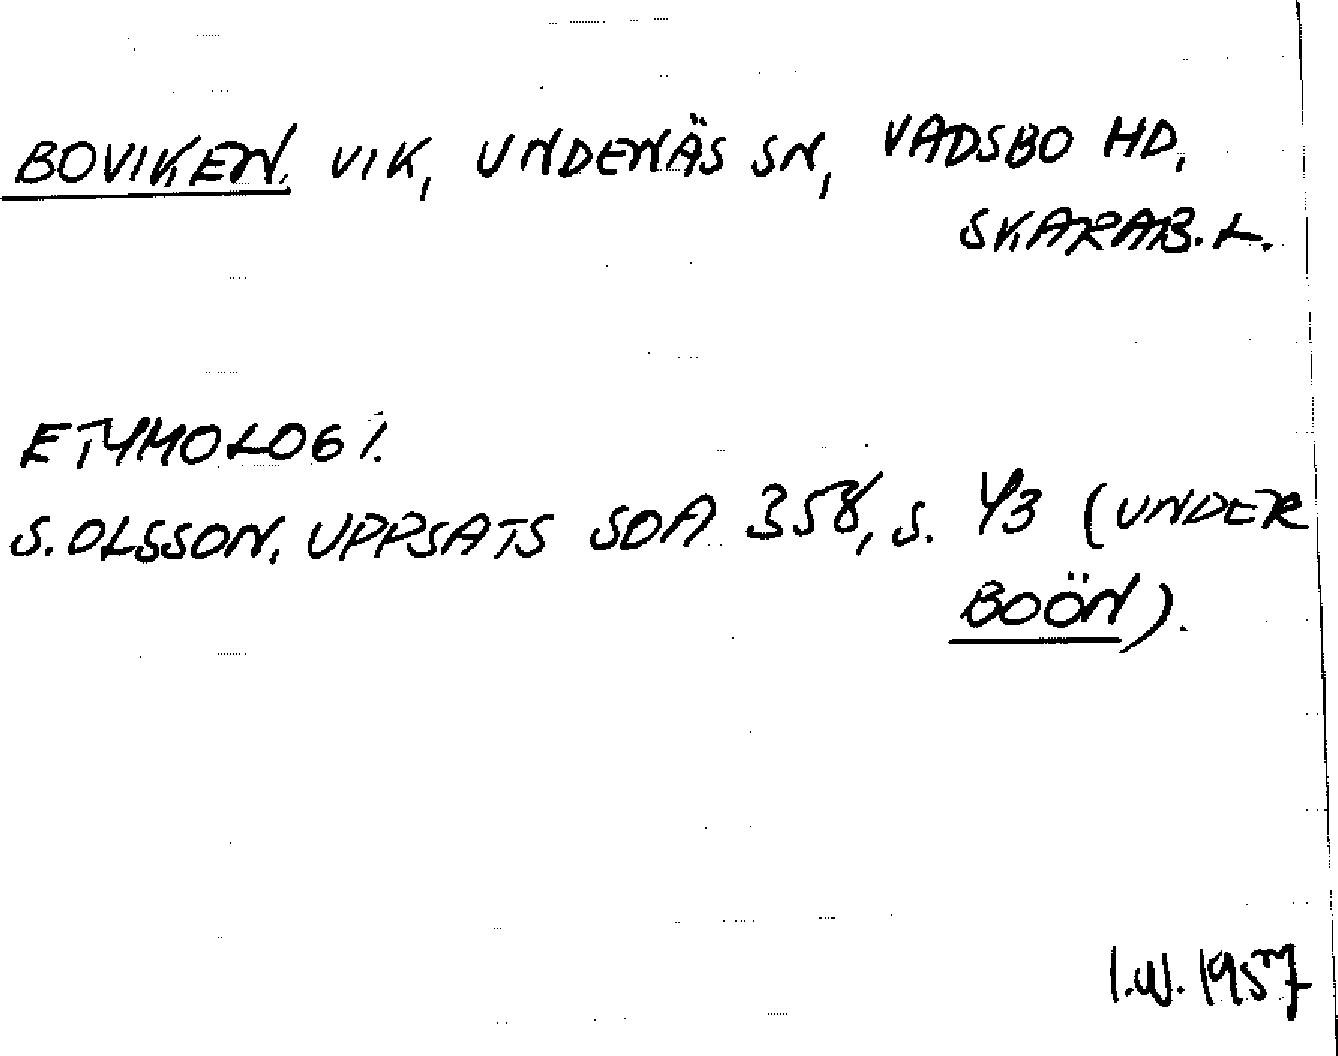 BOVIKEN. VIK, UNDENÄS SN, VADSBO HD,
SKARAB. L.
ETYMOLOGI.
S. OLSSON, UPPSATS SOA 358, S. 43 (UNDER
BOÖN).
I.W. 1957